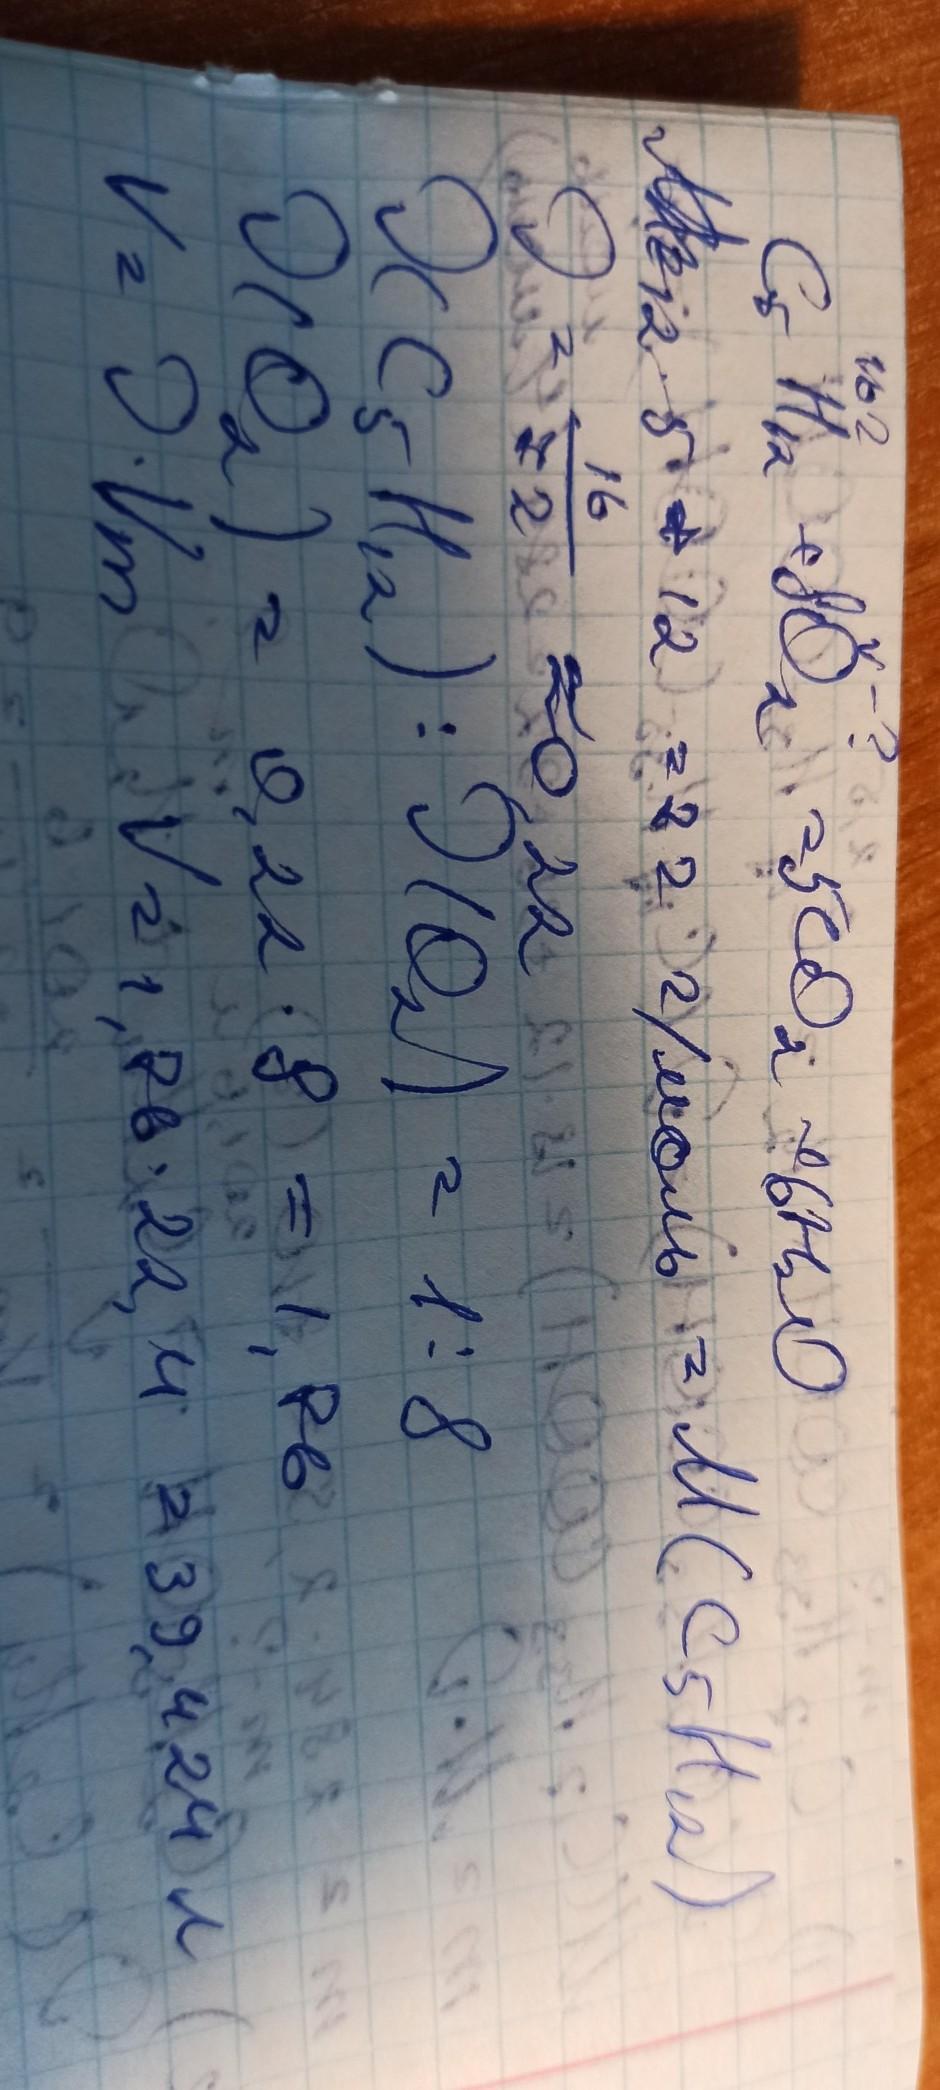 16 г V-?
C₅H₁₂ + 8O₂ = 5CO₂ + 6H₂O
12·5+12 = 72 г/моль = M(C₅H₁₂)
ν = 16/72 = 0,22
ν(C₅H₁₂) : ν(O₂) = 1:8
ν(O₂) = 0,22·8 = 1,76
V = ν·Vm V = 1,76·22,4 = 39,424 л